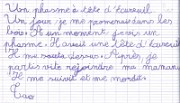 Un phasme à tête d'écureuil
Un jour je me promenais dans les
bois. A un moment j'avais un
phasme. Il avait une tête d'écureuil
Il me sauta dessus. Après, je
partis vite rejoindre ma maman.
Il me suivit et me mordit.
Tao